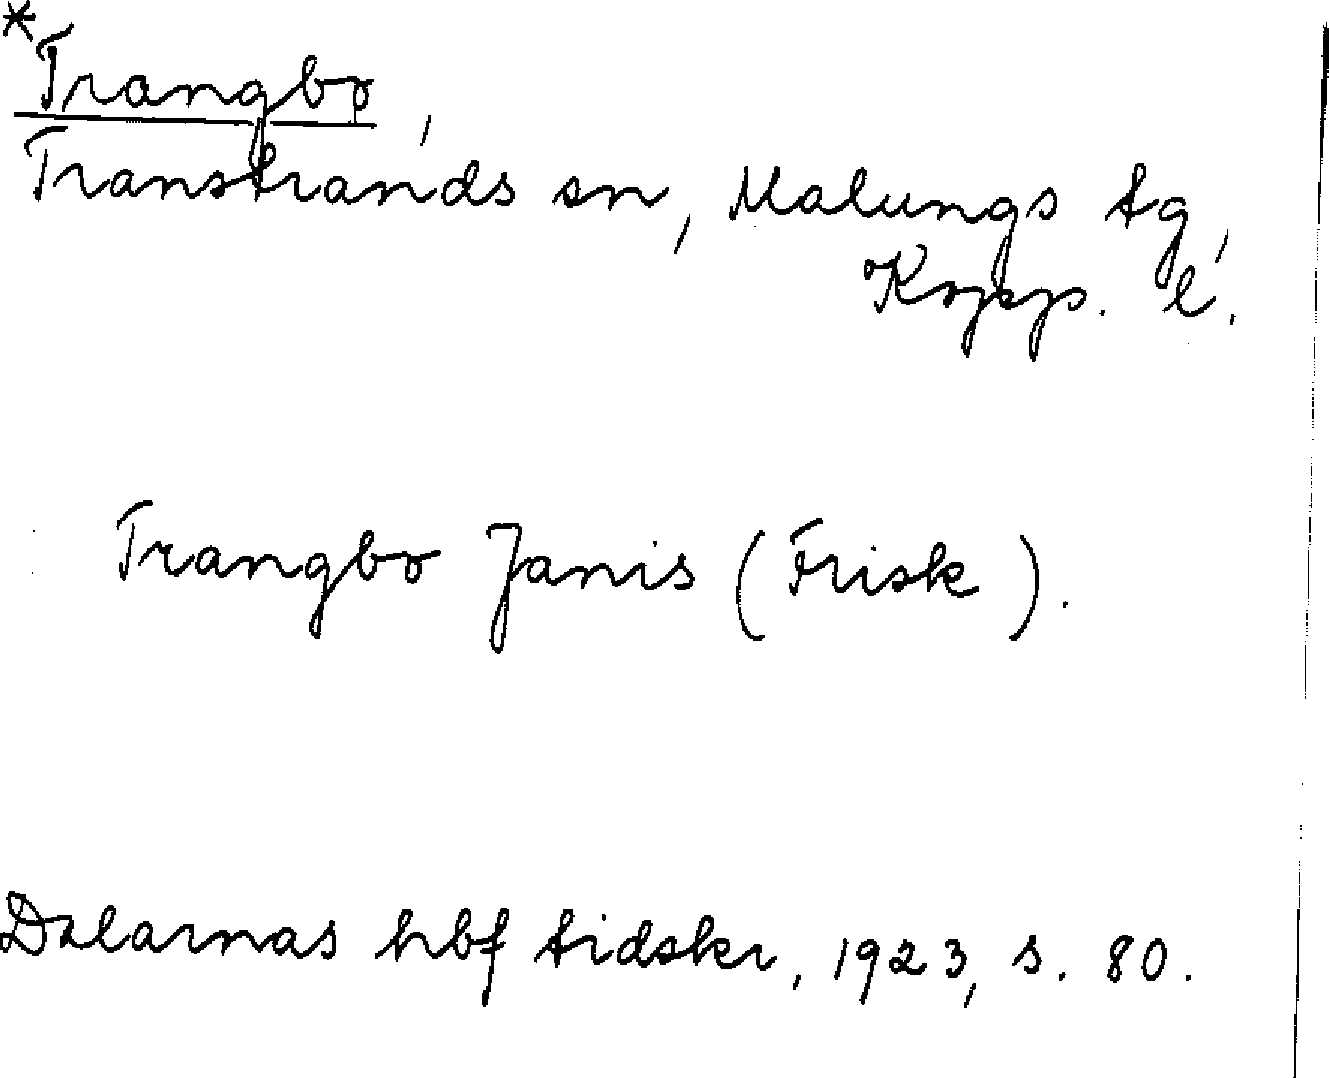 *Trangbo,
Transtrands sn, Malungs tg,
Kopp. l.
Trangbo Janis (Frisk).
Dalarnas hbf tidskr, 1923, s. 80.